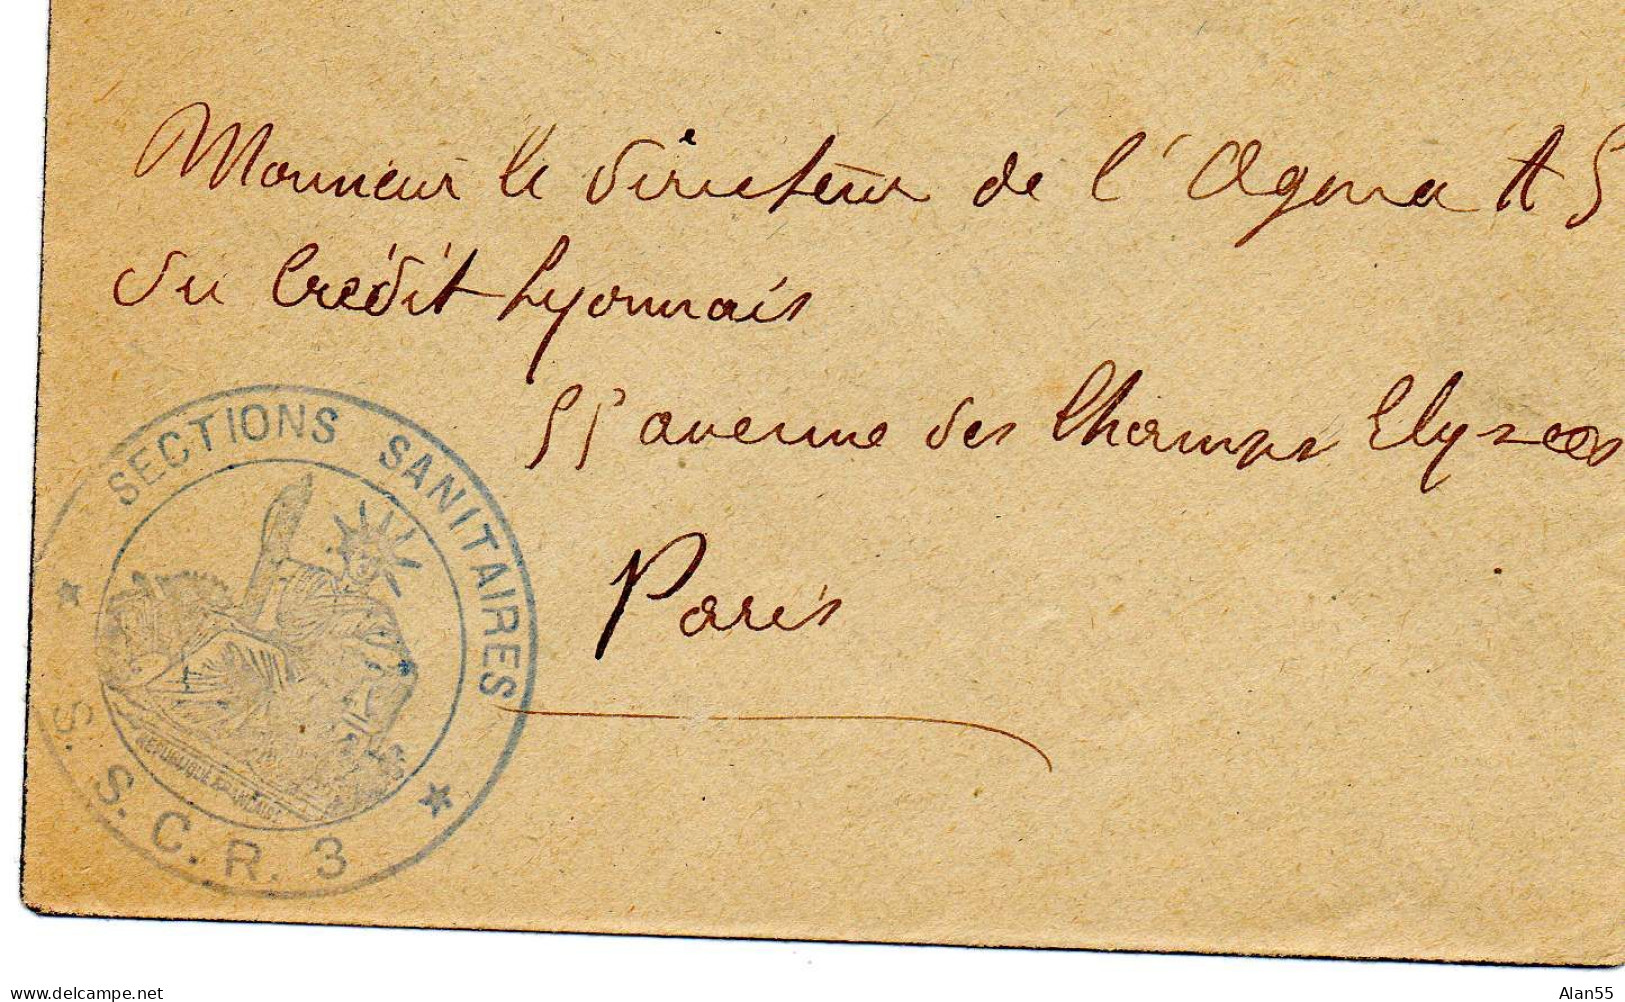 Monsieur le directeur de l'Agence A S
du Crédit Lyonnais
55 avenue des Champs Elysees
Paris
SECTIONS SANITAIRES
S. S. C. R. 3
REPUBLIQUE FRANCAISE
delcampe.net
Alan55